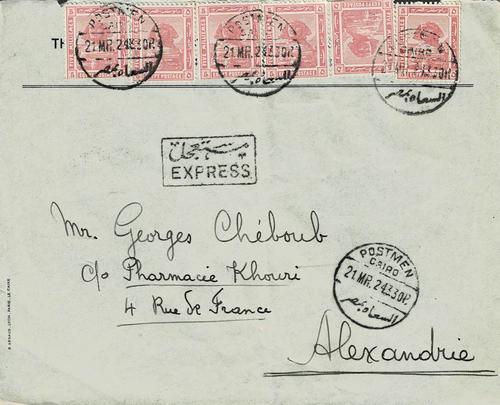 TH
POSTMEN
21 MR. 24 3.30 P.
السعاه بمصر
POSTMEN
21 MR. 24 3.30 P.
السعاه بمصر
CAIRO
السعاه بمصر
مستعجل
EXPRESS
Mr. Georges Chéboub
c/o Pharmacie Khouri
4 Rue de France
Alexandrie
POSTMEN
CAIRO
21 MR. 24 3.30 P.
السعاه بمصر